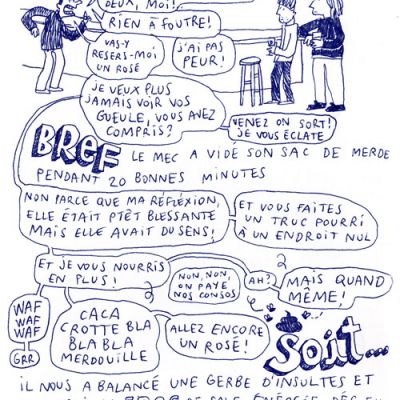 DEUX, MOI!
RIEN À FOUTRE!
VAS-Y
RESERS-MOI
UN ROSÉ
J'AI PAS
PEUR!
JE VEUX PLUS
JAMAIS VOIR VOS
GUEULE, VOUS AVEZ
COMPRIS?
VENEZ ON SORT!
JE VOUS ÉCLATE
BREF
LE MEC A VIDÉ SON SAC DE MERDE
PENDANT 20 BONNES MINUTES
NON PARCE QUE MA RÉFLÉXION,
ELLE ÉTAIT PTÊT BLESSANTE
MAIS ELLE AVAIT DU SENS!
ET VOUS FAITES
UN TRUC POURRI
À UN ENDROIT NUL
ET JE VOUS NOURRIS
EN PLUS!
NON, NON,
ON PAYE
NOS CONSOS
AH?
MAIS QUAND
MÊME!
WAF
WAF
WAF
GRR
CACA
CROTTE BLA
BLA BLA
MERDOUILLE
ALLEZ ENCORE
UN ROSÉ!
Soit...
IL NOUS A BALANCÉ UNE GERBE D'INSULTES ET